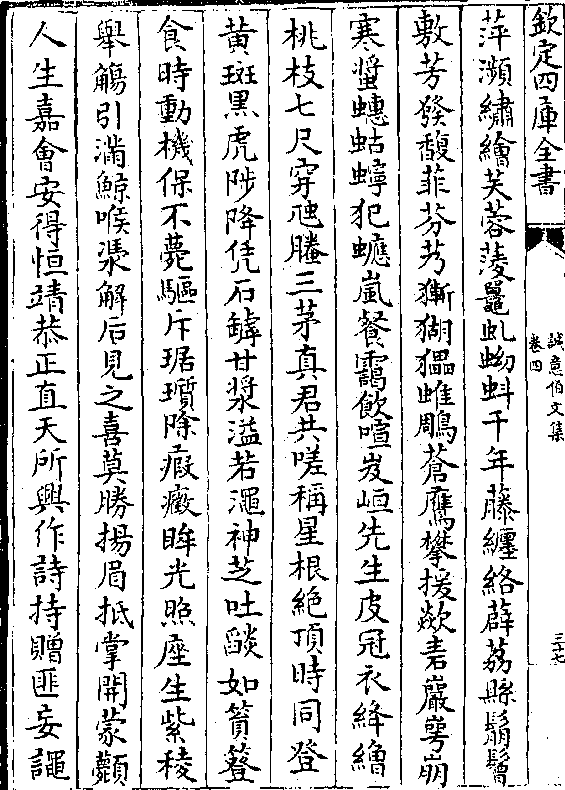 欽定四庫全書
誠意伯文集
卷四
三十七
萍瀕繡繪芙蓉蔆鼉虬蚴蚪千年藤纏絡薜荔縣鬅鬙
敷芳發馥菲芬艿獑猢猵雎鵰蒼鷹攀援歘砉巖崿崩
寒螿蟪蛄蠮犯䗤嵐餐靄飲喧岌峘先生皮冠衣絳繒
桃枝七尺穿虺螣三茅真君共嗟稱星根絶頂時同登
黄斑黒虎陟降凭石罅甘漿溢若澠神芝吐燄如簦簦
食時動機保不薨驅斥琚瓄除瘕癥眸光照座生紫稜
舉觴引滿鯨喉漰解后見之喜莫勝揚眉抵掌開蒙顭
人生嘉會安得恒靖恭正直天所興作詩持贈匪妄譝